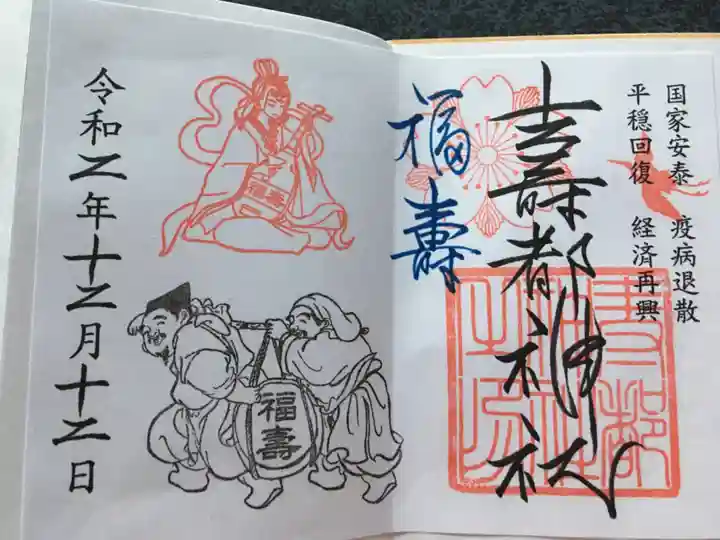 国家安泰 疫病退散
平穏回復 経済再興
壽都神社
福壽
福壽
福壽
令和二年十二月十二日